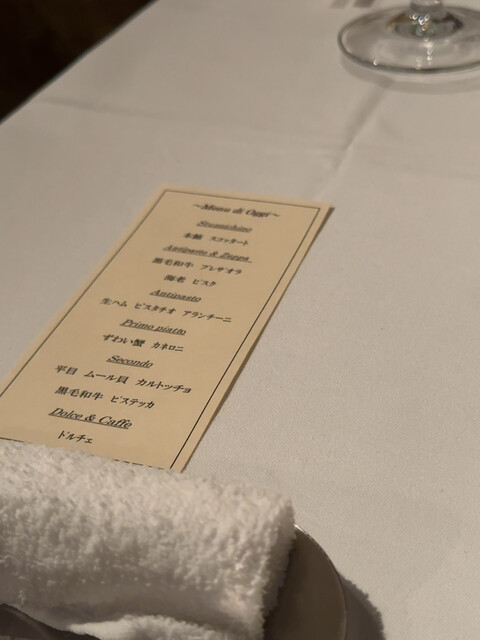 ~Menu di Oggi~
Stuzzichino
本鮪 スコッタート
Antipasto & Zuppa
黒毛和牛 ブレザオラ
海老 ビスク
Antipasto
生ハム ピスタチオ アランチーニ
Primo piatto
ずわい蟹 カネロニ
Secondo
平目 ムール貝 カルトッチョ
黒毛和牛 ビステッカ
Dolce & Caffe
ドルチェ